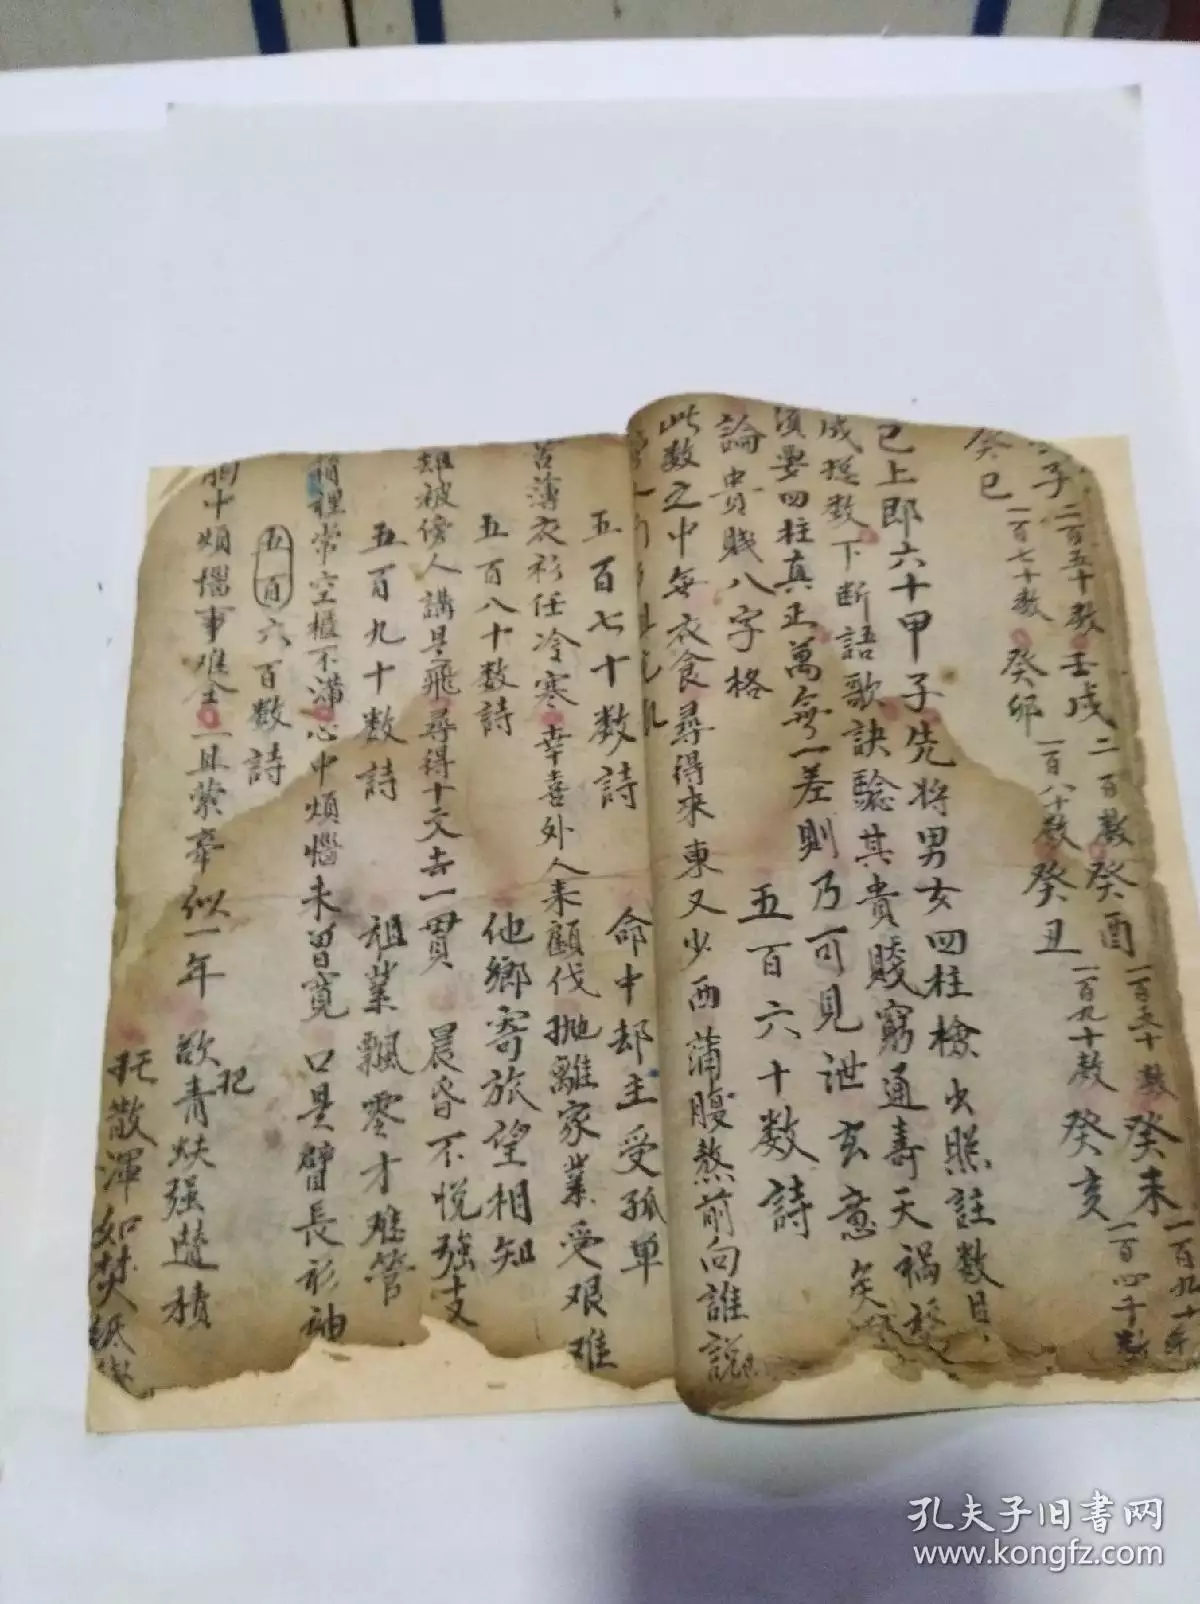 子 二百五十数 壬戌 二百数 癸酉 一百五十数 癸未 一百九十
癸巳 一百七十数 癸卯 一百八十数 癸丑 一百九十数 癸亥 一百四十数
已上郎六十甲子先将男女四柱檢出照註数目
成總数下断語歌訣驗其貴賤窮通壽夭禍
須要四柱真正萬無一差則乃可見泄玄意矣
論貴賤八字格 五百六十数詩
此数之中每衣食尋得來東又少西蒲腹熬煎向誰說
五百七十数詩 命中却主受孤单
苦薄衣衫任冷寒幸喜外人来顧伐抛離家業受艰难
五百八十数詩 他鄉寄旅望相知
雖被傍人講是飛尋得十文去一贯 晨昏不悦强支
五百九十数詩 祖業飄零才难管
箱裡常空櫃不满心中煩惱未曾寬 口是臂長衫袖
五百六百数詩
胸中煩惱事难全一旦縈牽似一年 欲把青蚨强趲積
托散渾如焚紙
孔夫子旧书网
www.kongfz.com